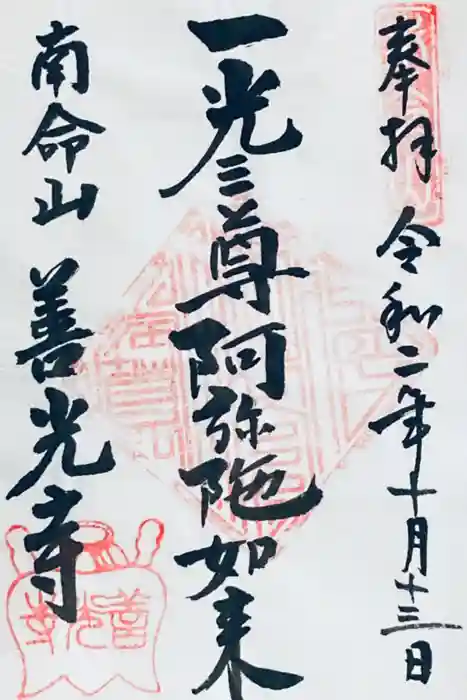 奉拝 令和二年十月十三日
一光三尊阿弥陀如来
南命山 善光寺
善光寺